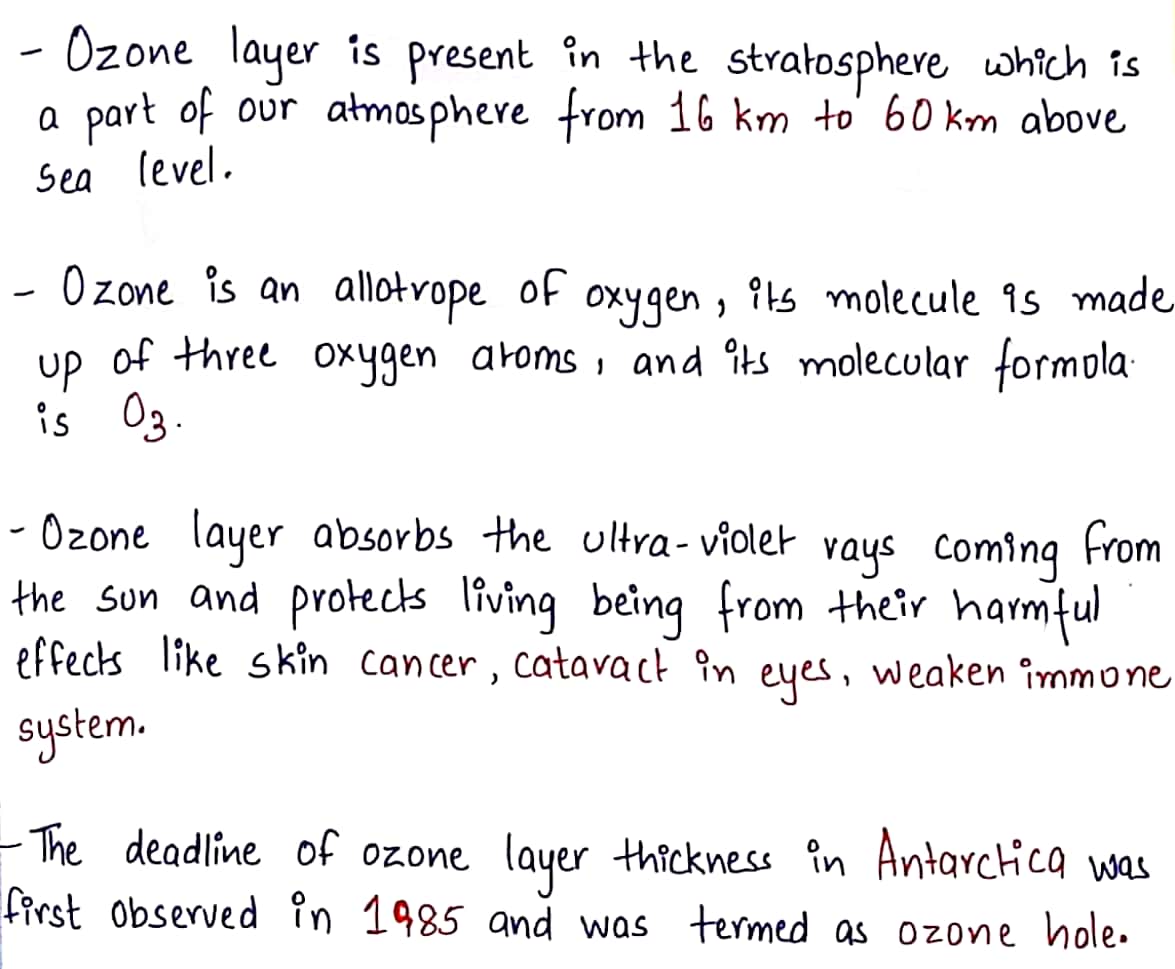 - Ozone layer is present in the stratosphere which is
a part of our atmosphere from 16 km to 60 km above
sea level.
- Ozone is an allotrope of oxygen, its molecule is made
up of three oxygen atoms, and its molecular formula
is O₃.
- Ozone layer absorbs the ultra-violet rays coming from
the sun and protects living being from their harmful
effects like skin cancer, cataract in eyes, weaken immune
system.
- The deadline of ozone layer thickness in Antarctica was
first observed in 1985 and was termed as ozone hole.